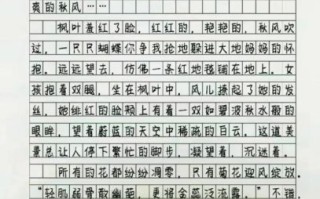 爽的秋风……
枫叶羞红了脸，红红的，艳艳的，秋风吹
过，一只只蝴蝶你争我抢地躲进大地妈妈的怀
抱。远远望去，仿佛一条红地毯铺在地上。女
孩抱着双腿，坐在枫叶中，风儿撩起了她的发
丝，她绯红的脸颊上有着一双如碧波秋水般的
眼眸，望着蔚蓝的天空中稀疏的白云，这道美
景总让人停下繁忙的脚步，凝望着，沉迷着。
所有的花都纷纷凋零，只有菊花迎风绽放。
“轻肌弱骨散幽葩，更将金蕊泛流霞。”不错